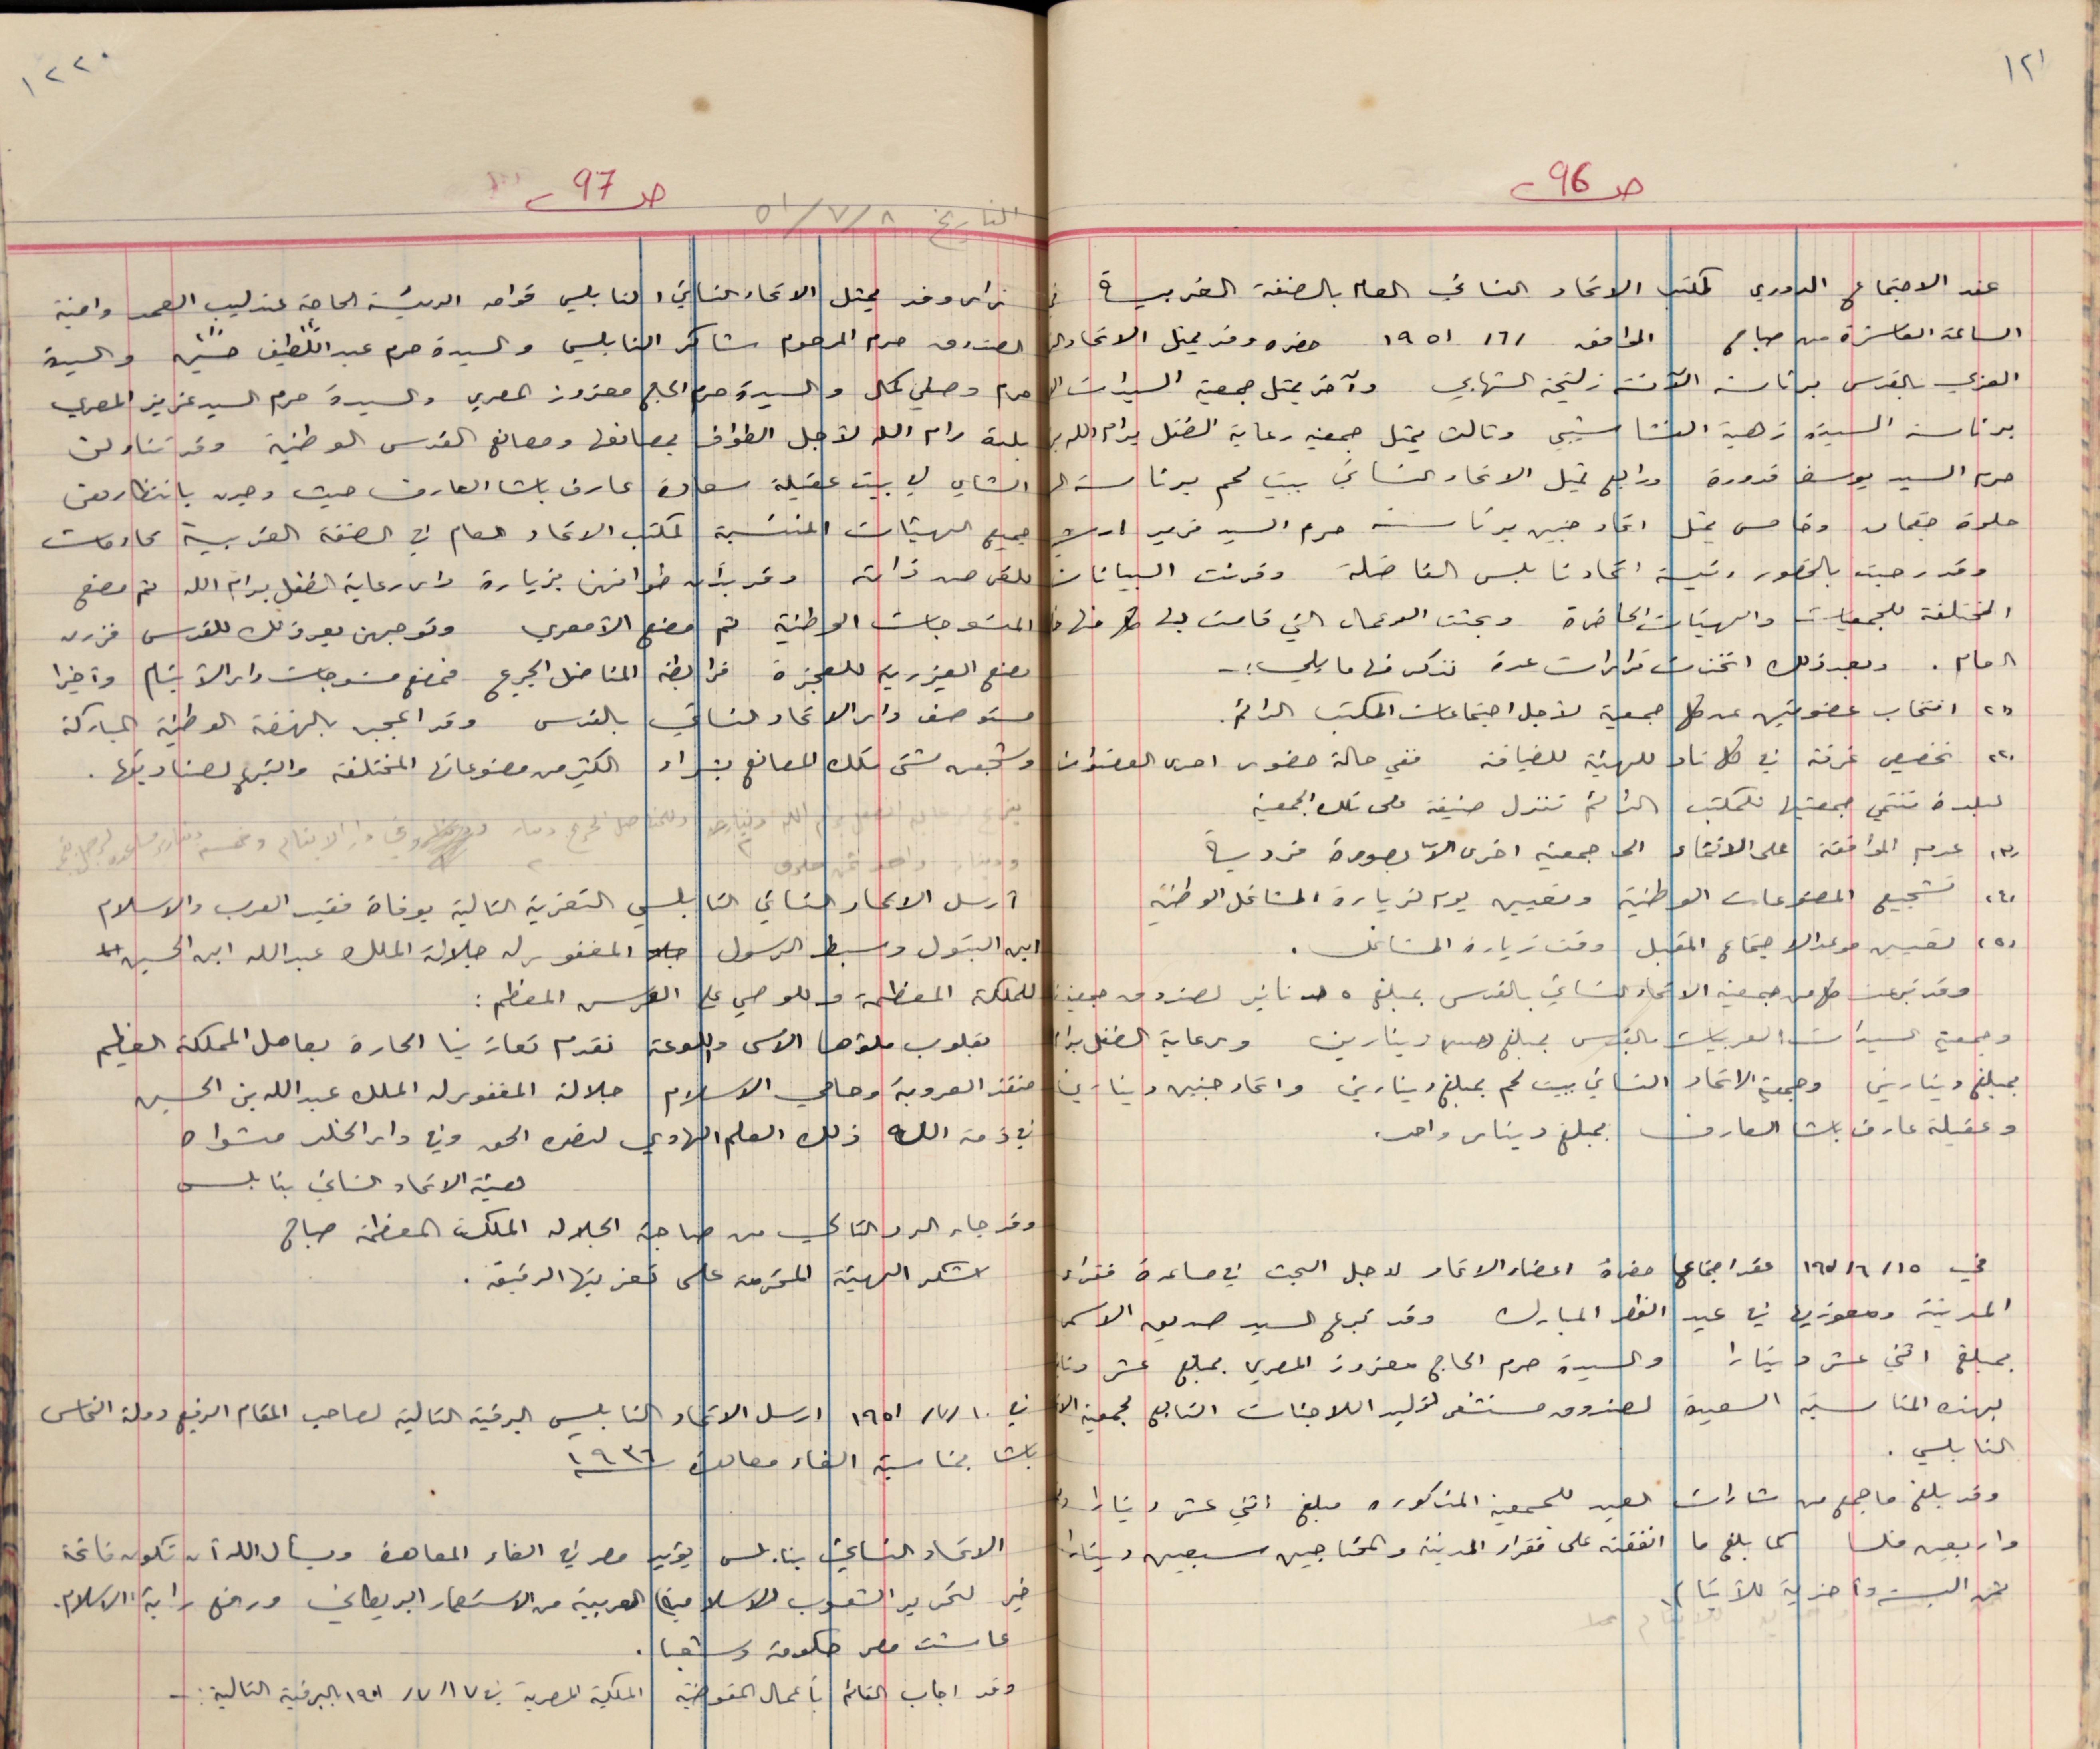 ١٢١
ص 96
عقد الاجتماع الدوري لمكتب الاتحاد النسائي العام بالضفة الغربية في
الساعة العاشرة من صباح الموافق ١٩٥١/٦/ حضره وفد يمثل الاتحاد
العربي بالقدس برئاسة الآنسة زليخة الشهابي وآخر يمثل جمعية السيدات
برئاسة السيدة زهية النشاشيبي وثالث يمثل جمعية رعاية الطفل برام الله
حرم السيد يوسف قدورة ورابع يمثل الاتحاد النسائي ببيت لحم برئاسة
حلوة جقمان وخامس يمثل اتحاد جنين برئاسة حرم السيد فريد ارشيد
وقد رحبت بالحضور رئيسة اتحاد نابلس الفاضلة وقرئت البيانات
المختلفة للجمعيات والهيئات الحاضرة وبحثت الاعمال التي قامت بها كل منها
العام . وبعد ذلك اتخذت قرارات عدة نذكر منها ما يلي :ـ
(١) انتخاب عضوتين عن كل جمعية لأجل اجتماعات المكتب الدائم.
(٢) تخصيص غرفة في كل ناد للهيئة للضيافة ففي حالة حضور احدى العضوات
لبلدة تنتمي جمعيتها لمكتب الدائم تنزل ضيفة على تلك الجمعية
(٣) عدم الموافقة على الانتماء الى جمعية اخرى الا بصورة فردية
(٤) تشجيع المصنوعات الوطنية وتعيين يوم لزيارة المشاغل الوطنية
(٥) تعيين موعد الاجتماع المقبل وقت زيارة المشاغل .
وقد تبرعت كل من جمعية الاتحاد النسائي بالقدس بمبلغ ٥ دنانير لصندوق جمعيتنا
وجمعية السيدات العربيات بالقدس بمبلغ دينارين ورعاية الطفل برام
بمبلغ دينارين وجمعية الاتحاد النسائي ببيت لحم بمبلغ دينارين واتحاد جنين دينارين
وعقيلة عارف باشا العارف بمبلغ دينار واحد.
في ١٩٥١/٦/١٥ عقد اجتماع حضرة اعضاء الاتحاد لاجل البحث في مساعدة فقراء
المدينة ومعوزيها في عيد الفطر المبارك وقد تبرع السيد صديق الاسمر
بمبلغ اثني عشر دينارا والسيدة حرم الحاج معزوز المصري بمبلغ عشر
بهذه المناسبة السعيدة لصندوق مستشفى توليد اللاجئات التابع لجمعية
النابلسي .
وقد بلغ ما جمع من شارات العيد للجمعية المذكورة مبلغ اثني عشر دينارا
واربعين فلسا كما بلغ ما انفقته على فقراء المدينة والمحتاجين سبعين دينارا
ثمن البسة واحذية للأيتام.
١٢٢
ص 97
التاريخ ٥١/٧/٨
زار وفد يمثل الاتحاد النسائي النابلسي قوامه الرئيسة الحاجة عندليب العمد وامينة
الصندوق حرم المرحوم شاكر النابلسي والسيدة حرم عبد اللطيف والسيدة
حرم وصفي كمال والسيدة حرم الحاج معزوز المصري والسيدة حرم السيد عزيز المصري
بلدة رام الله لأجل الطواف بمصانعها ومصانع القدس الوطنية وقد تناولن
الشاي في بيت عقيلة سعادة عارف باشا العارف حيث وجدن بانتظارهن
جميع الهيئات المنتسبة لمكتب الاتحاد العام في الضفة الغربية
للغرض ذاته وقد بدأن طوافهن بزيارة دار رعاية الطفل برام الله ثم مصنع
المنسوجات الوطنية ثم مصنع الأمعري وتوجهن بعد ذلك للقدس فزرن
مصنع العيزرية للعجزة فرابطة المناضل الجريح فمصنع منسوجات دار الأيتام وأخيرا
مستوصف دار الاتحاد النسائي بالقدس وقد اعجبن بالنهضة الوطنية المباركة
وشجعن شتى تلك المصانع بشراء الكثير من مصنوعاتها المختلفة والتبرع لصناديقها.
أرسل الاتحاد النسائي النابلسي التعزية التالية بوفاة فقيد العرب والاسلام
ابن البتول وسبط الرسول المغفور له جلالة الملك عبدالله ابن الحسين
للملكة المعظمة وللوصي على العرش المعظم :
بقلوب ملؤها الأسى واللوعة نقدم تعازينا الحارة بعاهل المملكة العظيم
منقذ العروبة وحامي الاسلام جلالة المغفور له الملك عبد الله بن الحسين
في ذمة الله ذلك العلم الهادي لنصره الحق وفي دار الخلد مثواه
هيئة الاتحاد النسائي بنابلس
وقد جاء الرد التالي من صاحبة الجلالة الملكة المعظمة صباح
اشكر الهيئة المحترمة على تعزيتها الرقيقة .
في ١٩٥١/٧/١٠ ارسل الاتحاد النابلسي البرقية التالية لصاحب المقام الرفيع دولة النحاس
باشا بمناسبة الغاء معاهدة ١٩٣٦
الاتحاد النسائي بنابلس يؤيد مصر في الغاء المعاهدة ويسأل الله أن تكون فاتحة
خير لتحرير الشعوب الاسلامية العربية من الاستعمار البريطاني ورافع راية الاسلام.
عاشت مصر حكومة وشعبا .
وقد اجاب القائم بأعمال المفوضية الملكية المصرية في ١٩٥١/٧/١٧ البرقية التالية :ـ